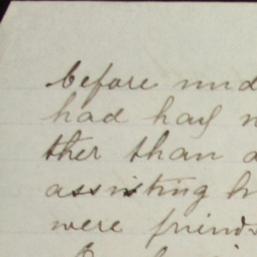 before und
had had n
ther than a
assisting h
were friends